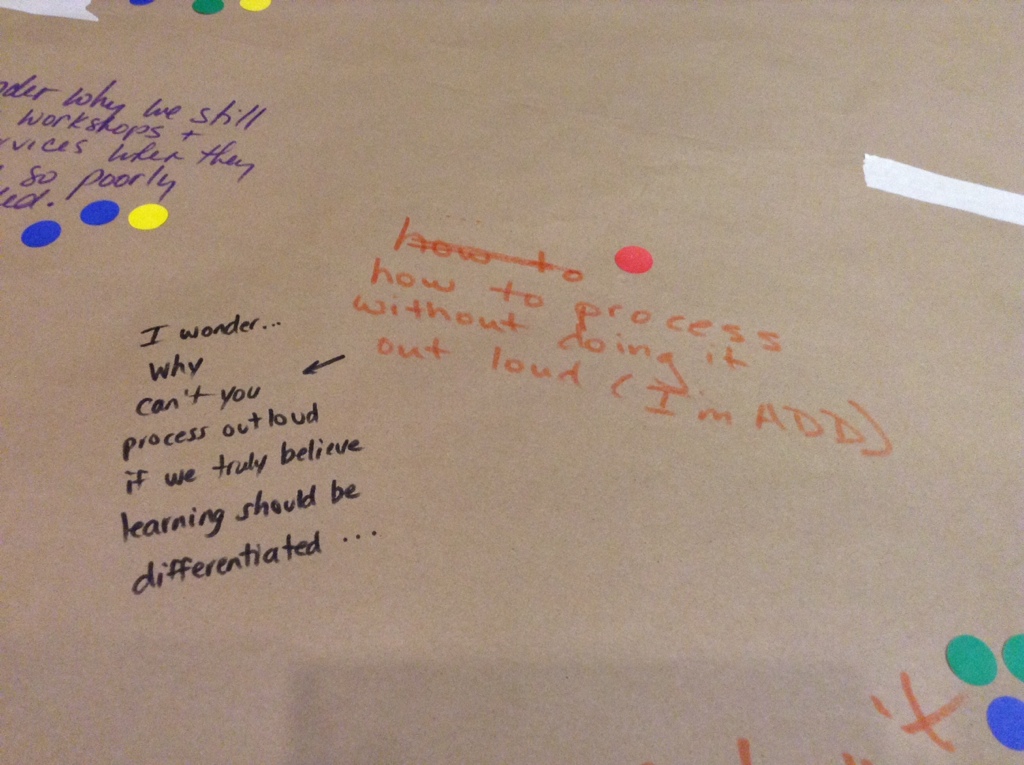 why we still
workshops +
when they
so poorly
how to
how to process
without doing it
out loud (I'm ADD)
I wonder...
why
can't you
process out loud
if we truly believe
learning should be
differentiated ...